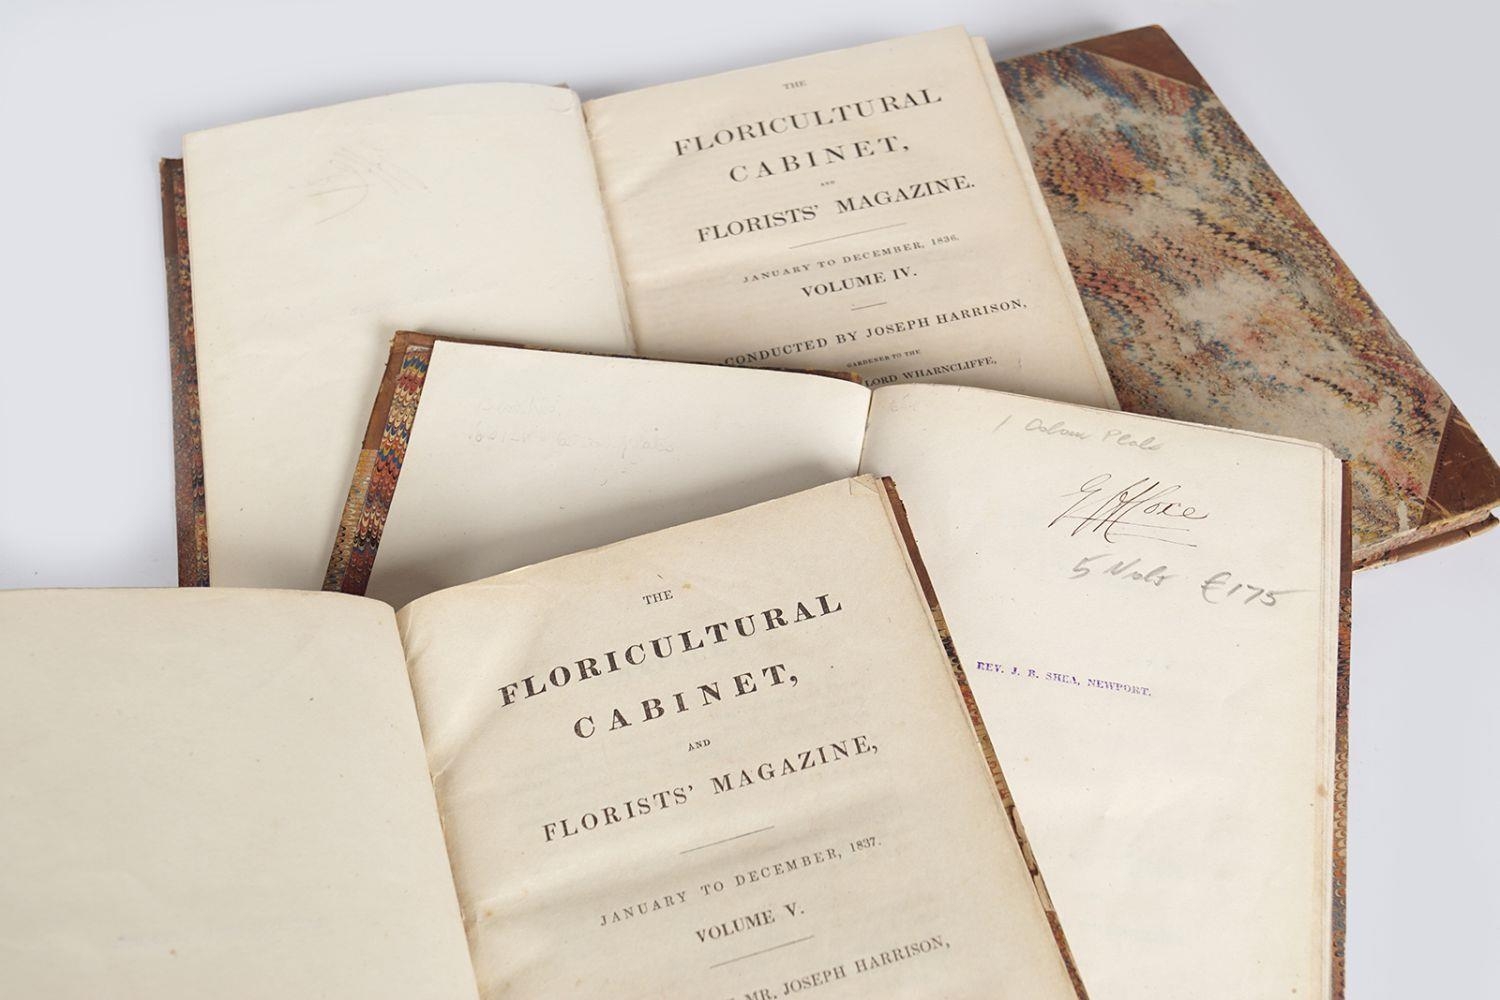 THE
FLORICULTURAL
CABINET,
AND
FLORISTS' MAGAZINE.
JANUARY TO DECEMBER, 1836.
VOLUME IV.
CONDUCTED BY JOSEPH HARRISON,
GARDENER TO THE
LORD WHARNCLIFFE,
1 Colour Plate
5 Vols €175
REV. J. B. SHEA, NEWPORT.
THE
FLORICULTURAL
CABINET,
AND
FLORISTS' MAGAZINE,
JANUARY TO DECEMBER, 1837.
VOLUME V.
MR. JOSEPH HARRISON,